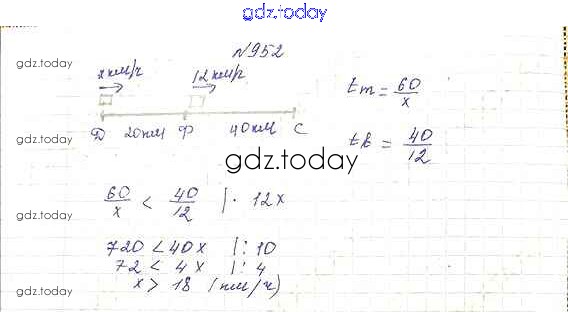 gdz.today
№952
gdz.today
x км/ч
12 км/ч
tм = 60/x
Д 20км Ф 40км С
tв = 40/12
gdz.today
gdz.today
60/x < 40/12 | · 12x
gdz.today
720 < 40x | : 10
72 < 4x | : 4
x > 18 (км/ч)
gdz.today